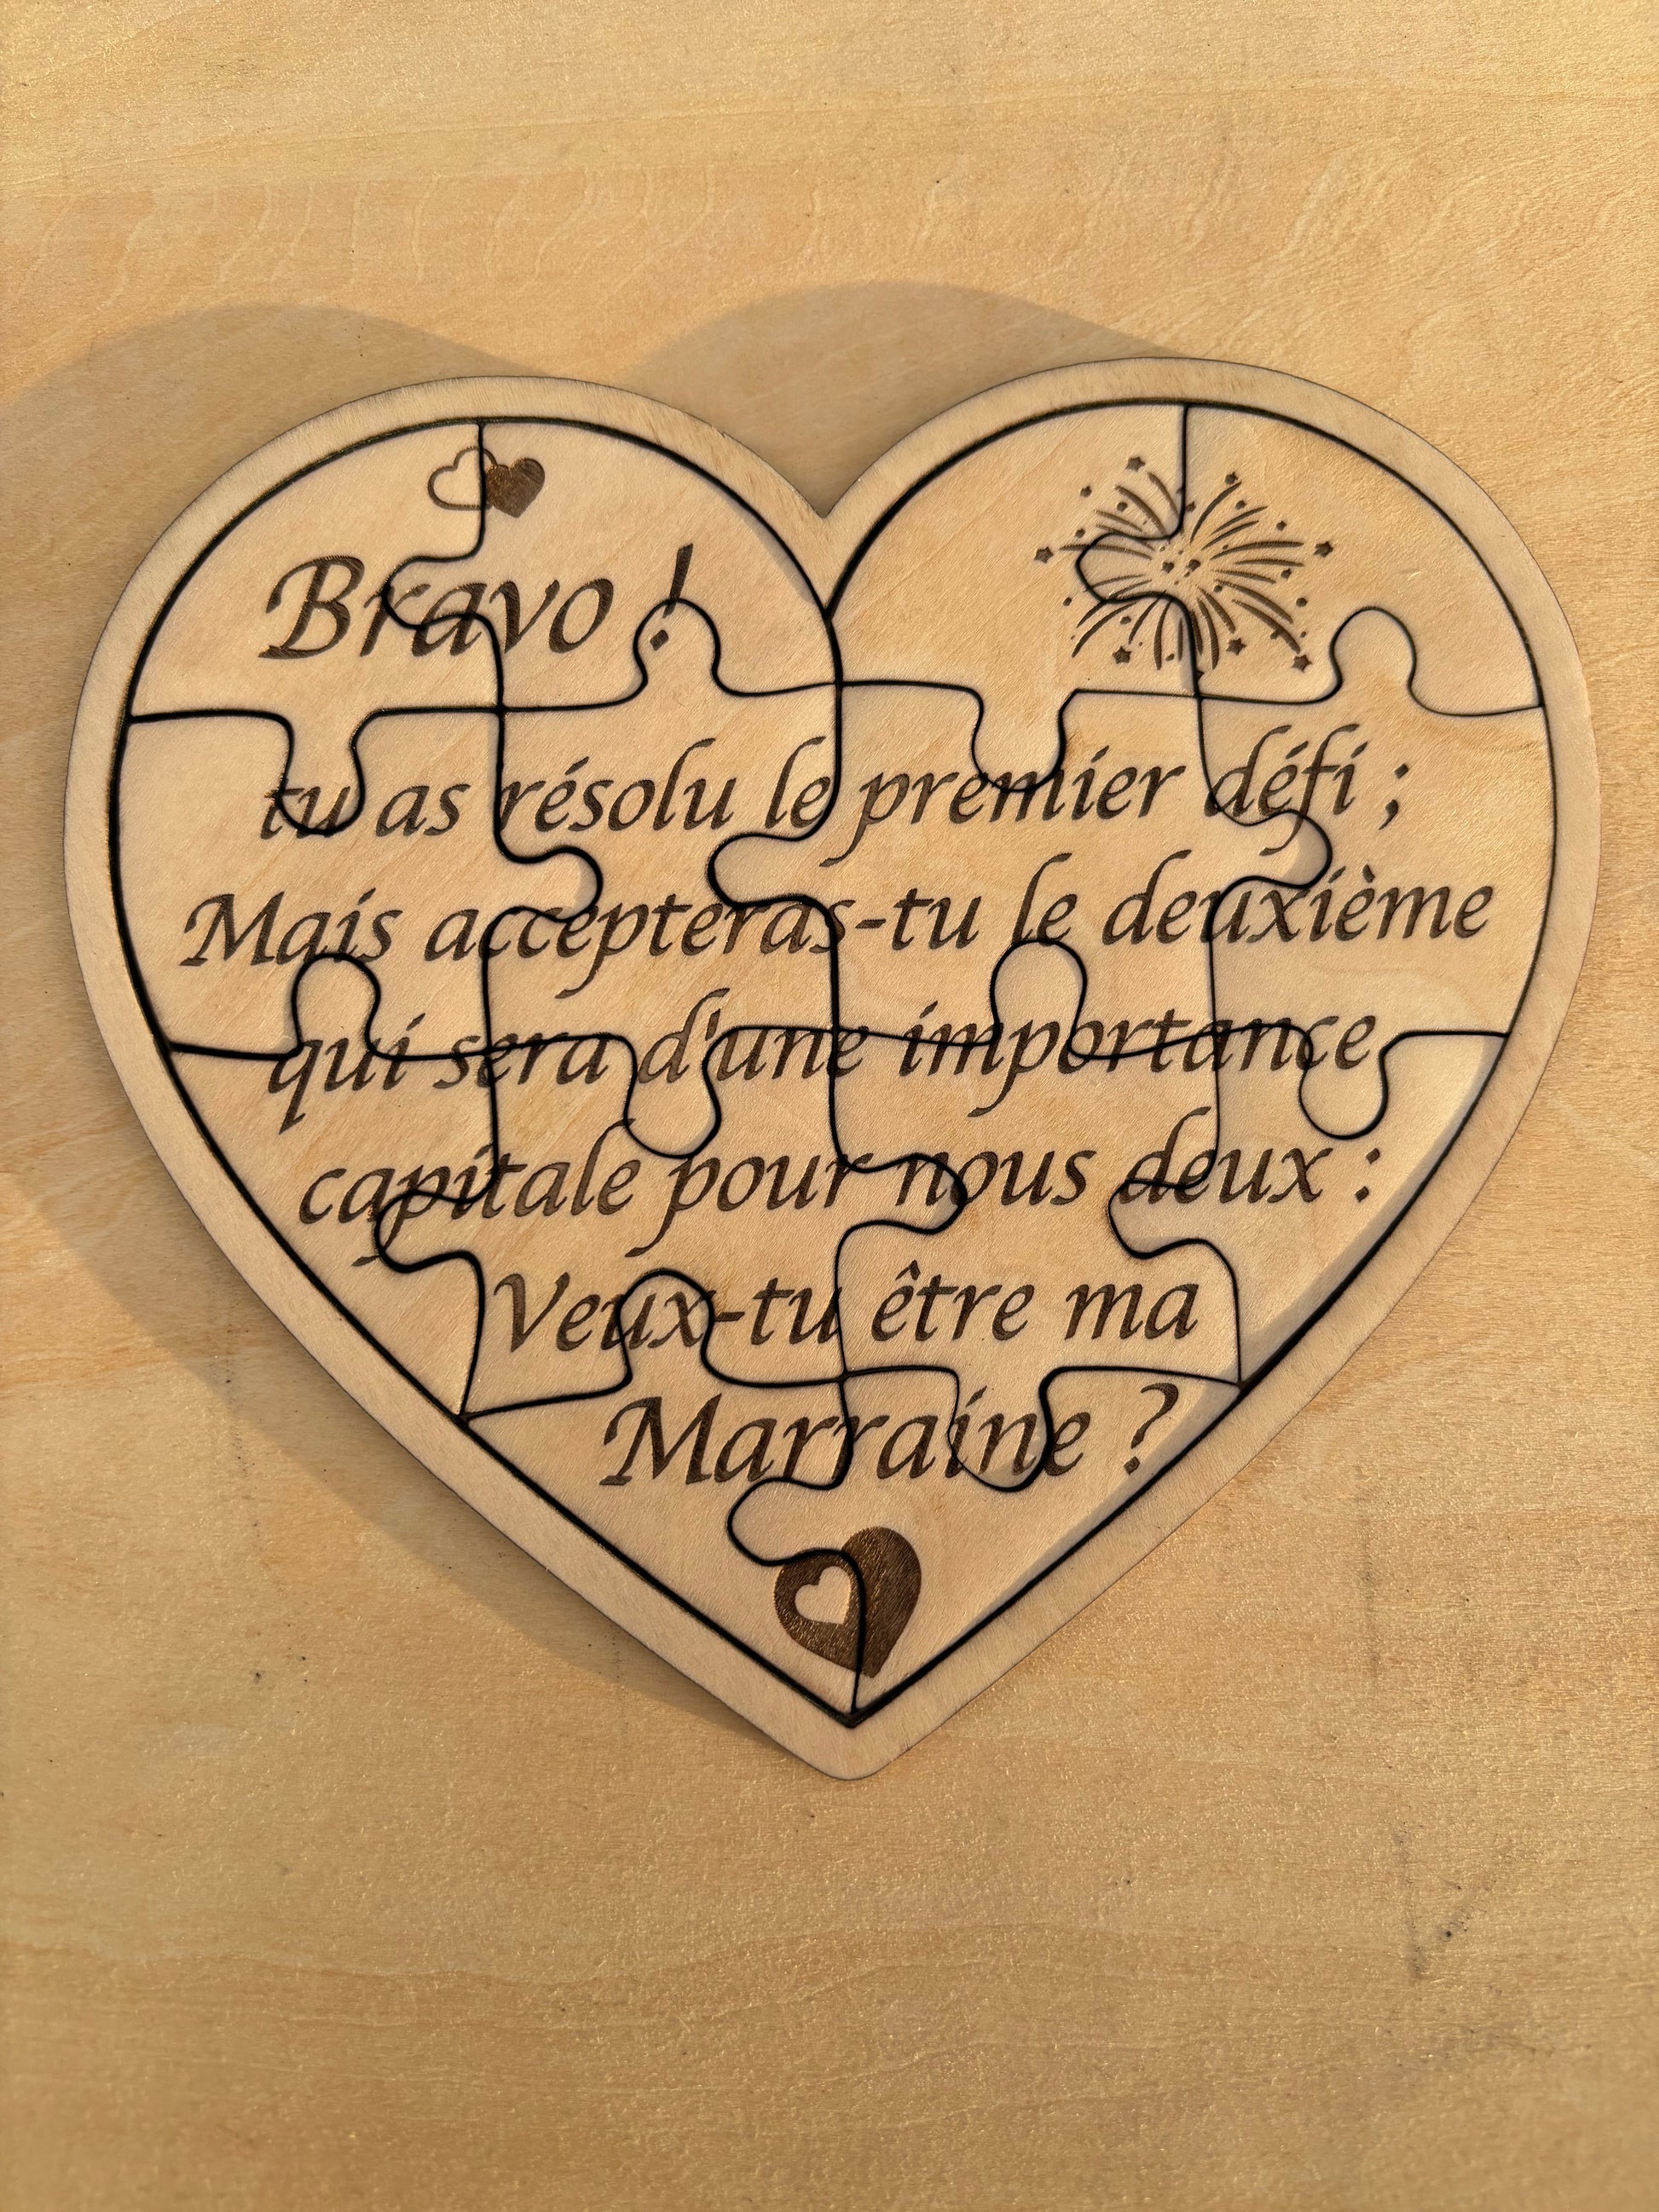 Bravo !
tu as résolu le premier défi ;
Mais accepteras-tu le deuxième
qui sera d'une importance
capitale pour nous deux :
Veux-tu être ma
Marraine ?